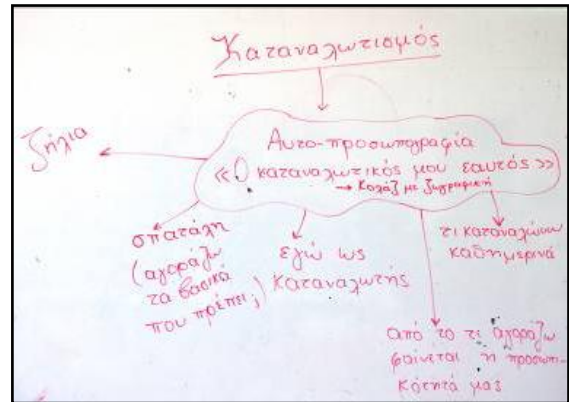 Καταναλωτισμός
Αυτο-προσωπογραφία
«Ο καταναλωτικός μου εαυτός»
→ Κολάζ με ζωγραφική
ζήλια
σπατάλη
(αγοράζω
τα βασικά
που πρέπει;)
εγώ ως
καταναλωτής
τι καταναλώνω
καθημερινά
από το τι αγοράζω
φαίνεται η προσωπι-
κότητά μας